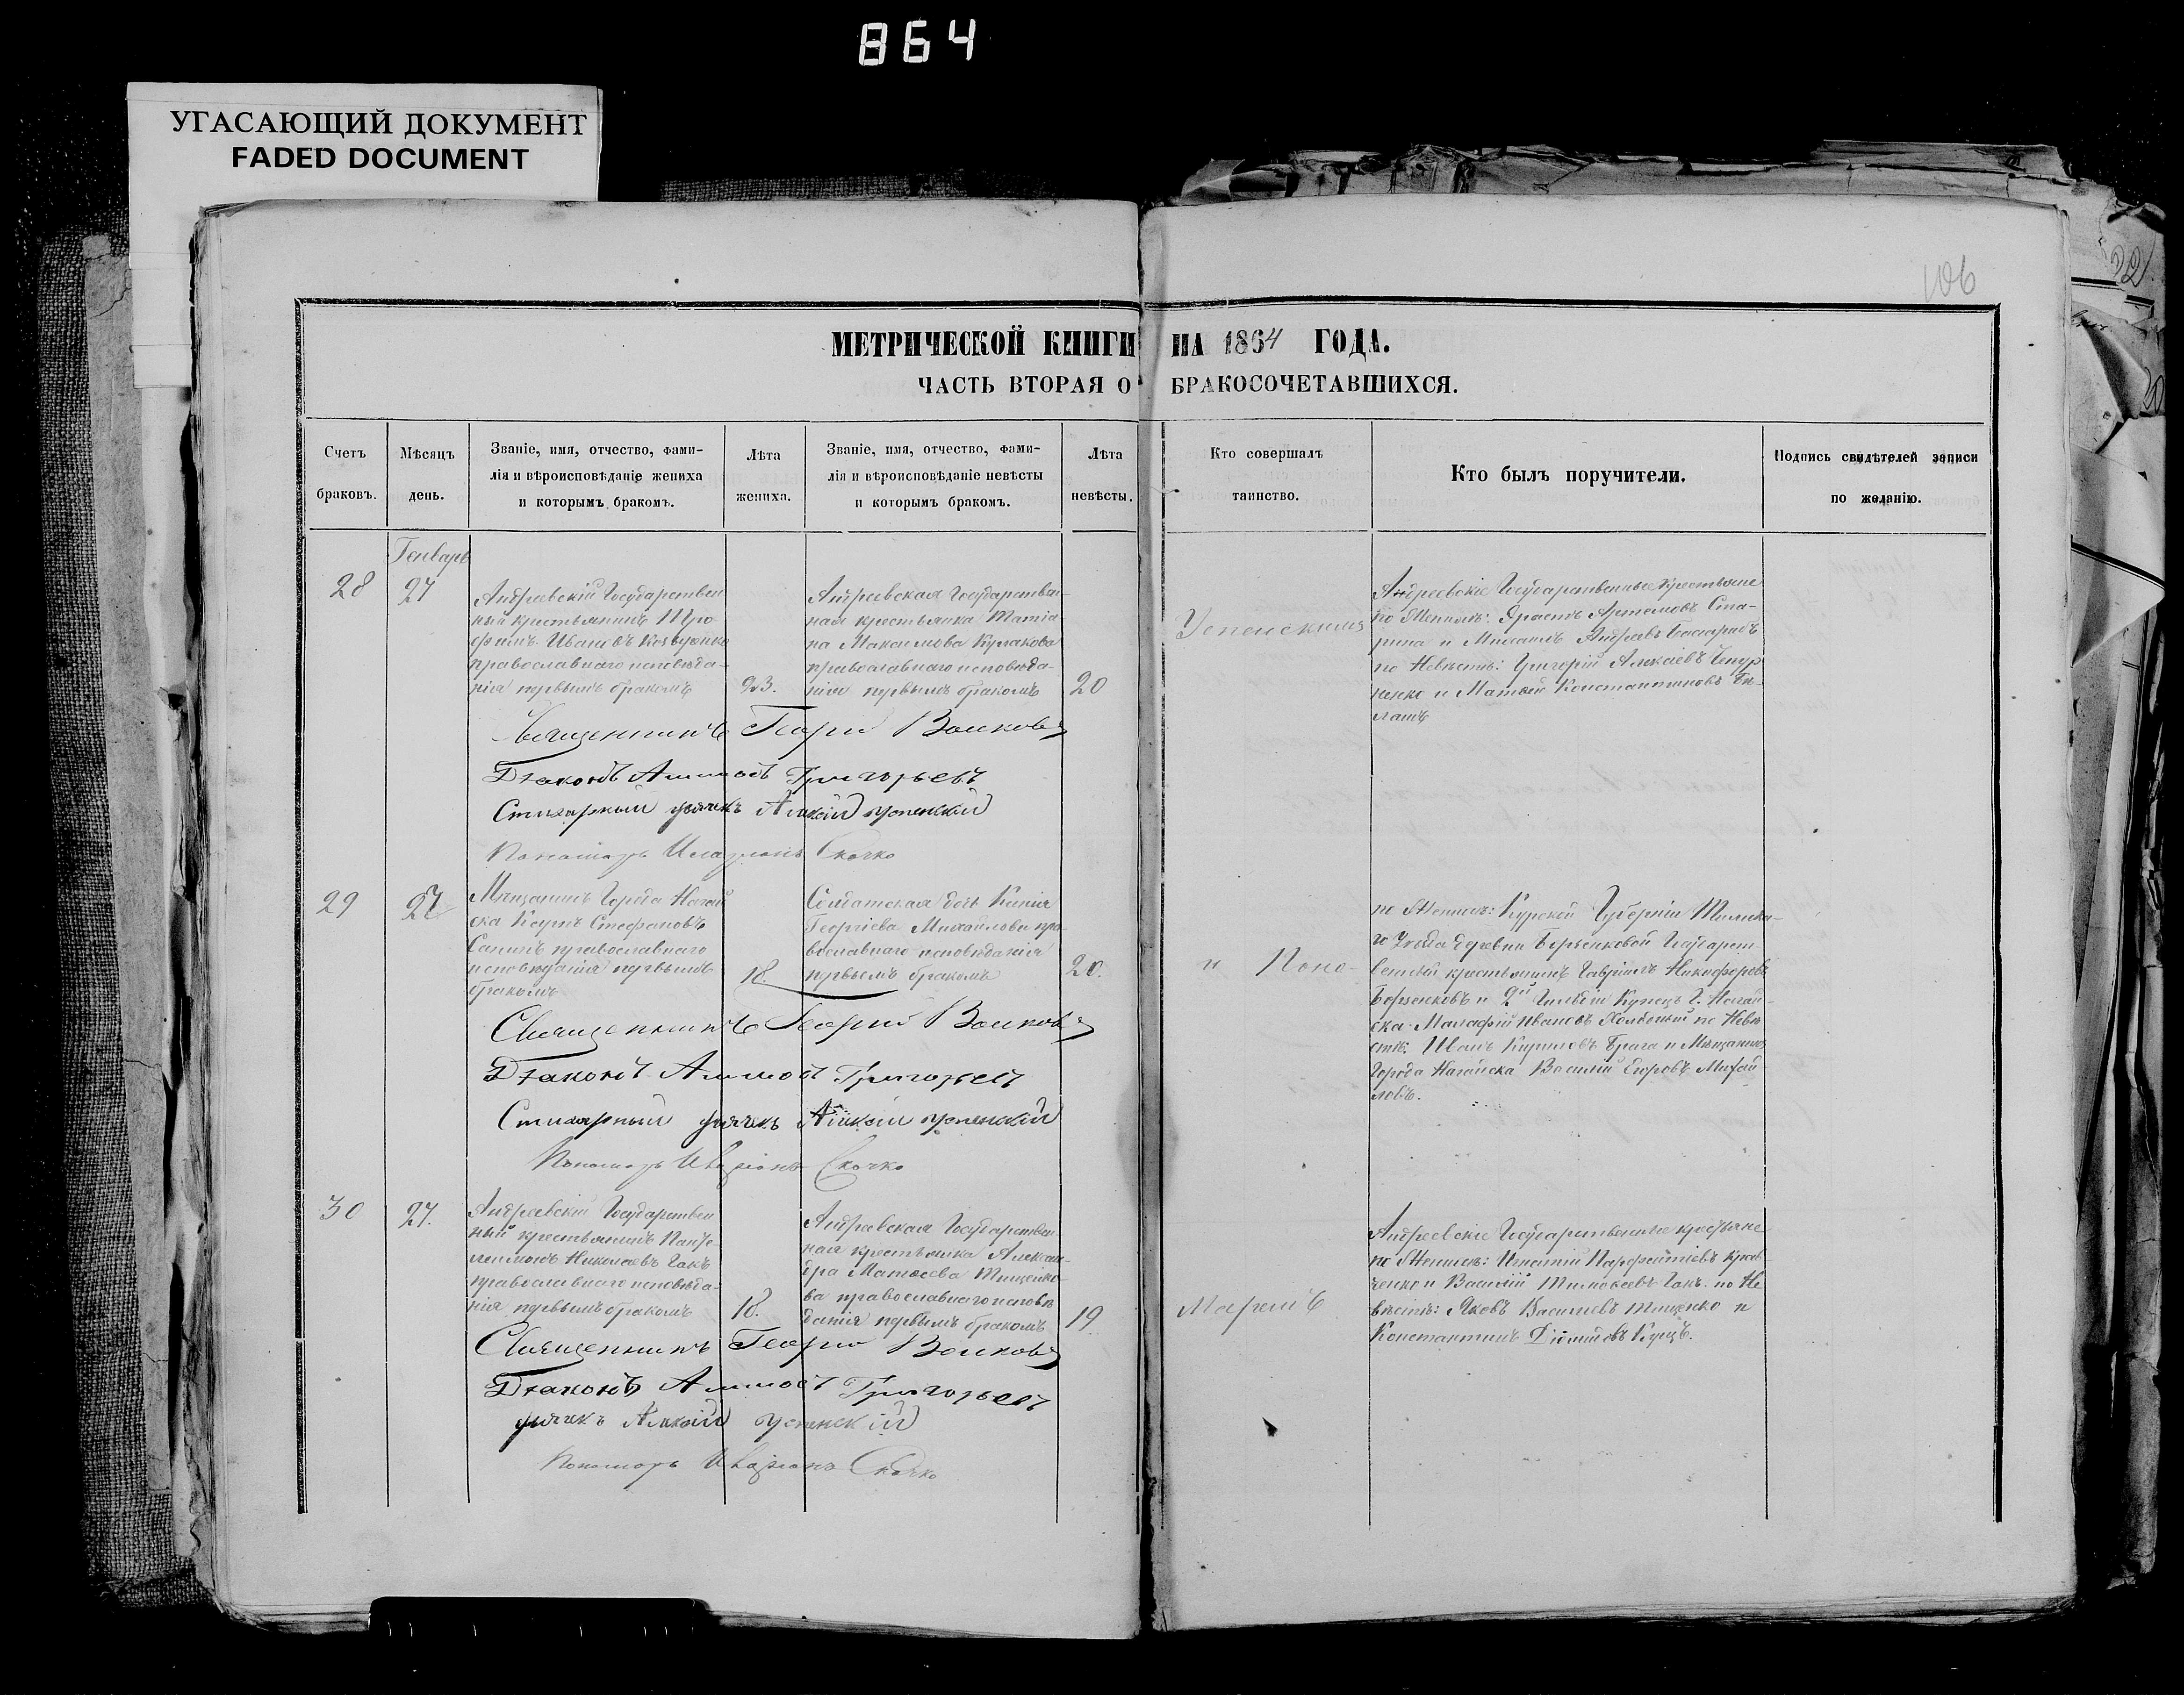 864
УГАСАЮЩИЙ ДОКУМЕНТ
FADED DOCUMENT
106
МЕТРИЧЕСКОЙ КНИГИ НА 1864 ГОДА.
ЧАСТЬ ВТОРАЯ О БРАКОСОЧЕТАВШИХСЯ.
Счетъ
браковъ.
Мѣсяцъ
день.
Званіе, имя, отчество, фами-
лія и вѣроисповѣданіе жениха
и которымъ бракомъ.
Лѣта
жениха.
Званіе, имя, отчество, фами-
лія и вѣроисповѣданіе невѣсты
и которымъ бракомъ.
Лѣта
невѣсты.
Кто совершалъ
таинство.
Кто былъ поручители.
Подпись свидѣтелей записи
по желанію.
Генварь
28
27
Андреевскій Государствен
ный крестьянинъ Тро
фимъ Ивановъ
православнаго исповѣда-
нія первымъ бракомъ
23.
Андреевская Государствен-
ная крестьянка Татіа
на Максимова Кулакова
православнаго исповѣда-
нія первымъ бракомъ
20
Успенскимъ
Андреевскіе Государственные крестьяне
по Женихѣ: Ерастъ Артемовъ Спа-
рина и Михаилъ Андреевъ
по Невѣстѣ: Григорій Алексіевъ Чепур
ненко и Матвей Константиновъ Бѣ-
лашъ
Священникъ Георгій Волковъ
Діаконъ Григорьевъ
Стихарный дьячекъ Алексій Успенскій
Пономарь Иларіонъ Скочко
29
27
Мѣщанинъ Города Ногай
ска Стефановъ
Санинъ православнаго
исповѣданія первымъ
бракомъ
18.
Солдатская дочь Ксенія
Георгіева Михайлова пра-
вославнаго исповѣданія
первымъ бракомъ
20.
и Поно-
по Женихѣ: Курской Губерніи Тимска-
го Уѣзда деревни Борзенковой Государст-
венный крестьянинъ Гавріилъ Никифоровъ
Борзенковъ и 2й Гильдіи Купецъ Г. Ногай-
ска Ивановъ по Невѣ
стѣ: Иванъ Кириловъ Брага и Мѣщанинъ
Города Ногайска Василій Егоровъ Михай
ловъ.
Священникъ Георгій Волковъ
Діаконъ Григорьевъ
Стихарный дьячекъ Алексій Успенскій
Пономарь Иларіонъ Скочко
30
27.
Андреевскій Государствен
ный крестьянинъ Панте-
леимонъ Николаевъ Гакъ
православнаго исповѣда-
нія первымъ бракомъ
18.
Андреевская Государствен
ная крестьянка Алексан-
дра Матвеева Тищенко-
ва православнаго исповѣ
данія первымъ бракомъ
19
Маремъ
Андреевскіе Государственные крестьяне
по Женихѣ: Игнатій Парфентіевъ Крав
ченко и Василій Тимофеевъ Гакъ по Не
вѣстѣ: Яковъ Васильевъ Тищенко и
Константинъ Куцъ.
Священникъ Георгій Волковъ
Діаконъ Григорьевъ
дьячекъ Алексій Успенскій
Пономарь Иларіонъ Скочко